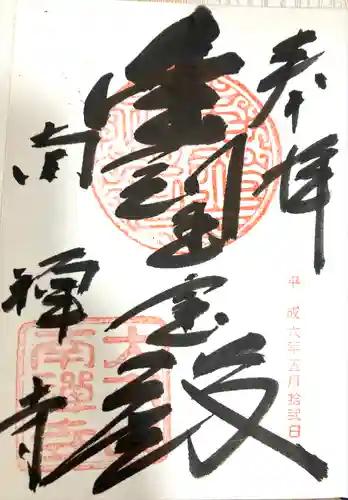 奉拝
平成六年五月拾弐日
金剛王宝殿
南禅寺
大本山
南禪寺